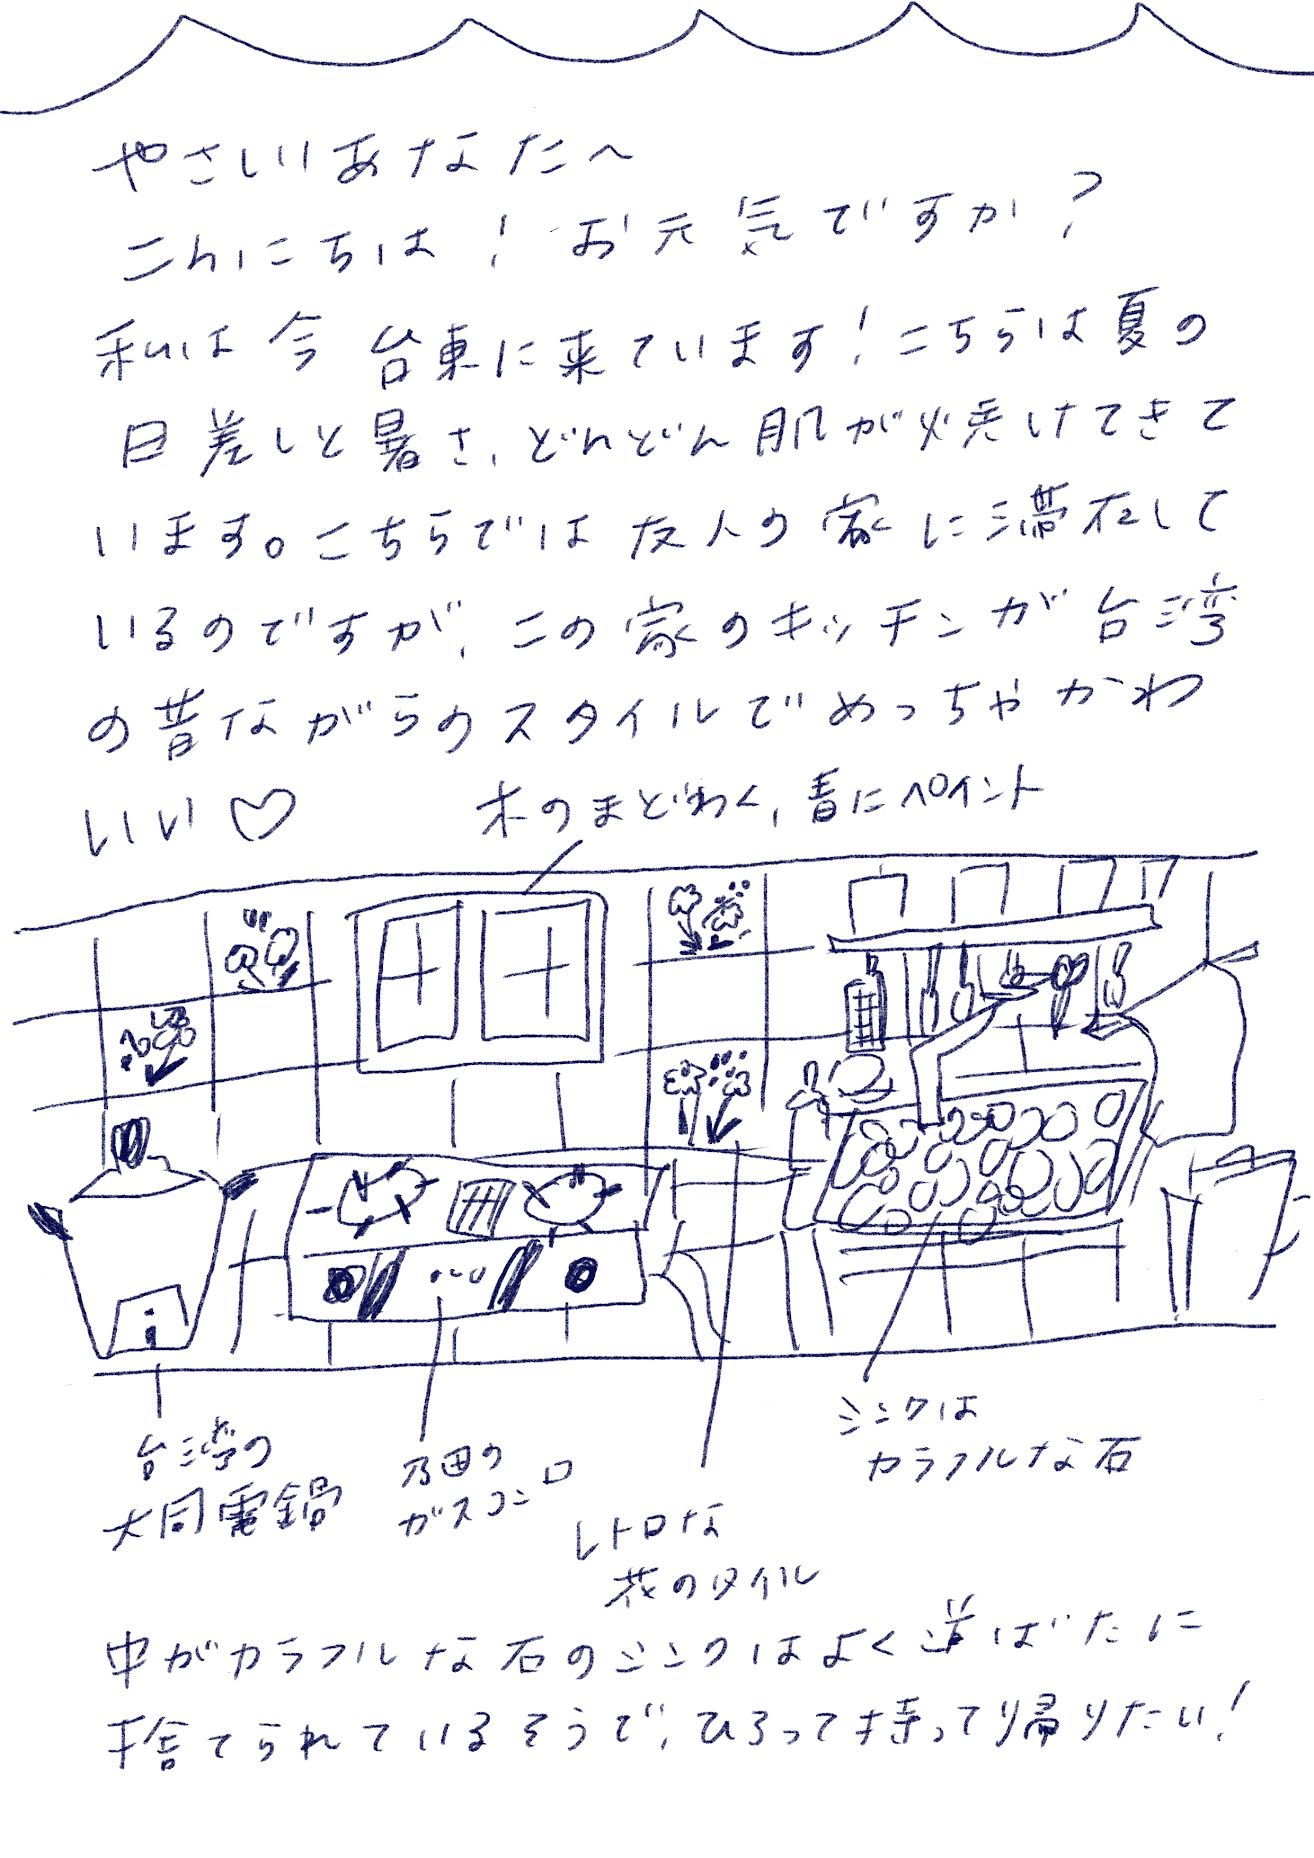 やさしいあなたへ
こんにちは！お元気ですか？
私は今台東に来ています！こちらは夏の
日差しと暑さ、どんどん肌が焼けてきて
います。こちらでは友人の家に滞在して
いるのですが、この家のキッチンが台湾
の昔ながらのスタイルでめっちゃかわ
いい♡
木のまどわく、青にペイント
台湾の
大同電鍋
乃田の
ガスコンロ
レトロな
花のタイル
シンクは
カラフルな石
中がカラフルな石のシンクはよく道ばたに
捨てられているそうで、ひろって持って帰りたい！